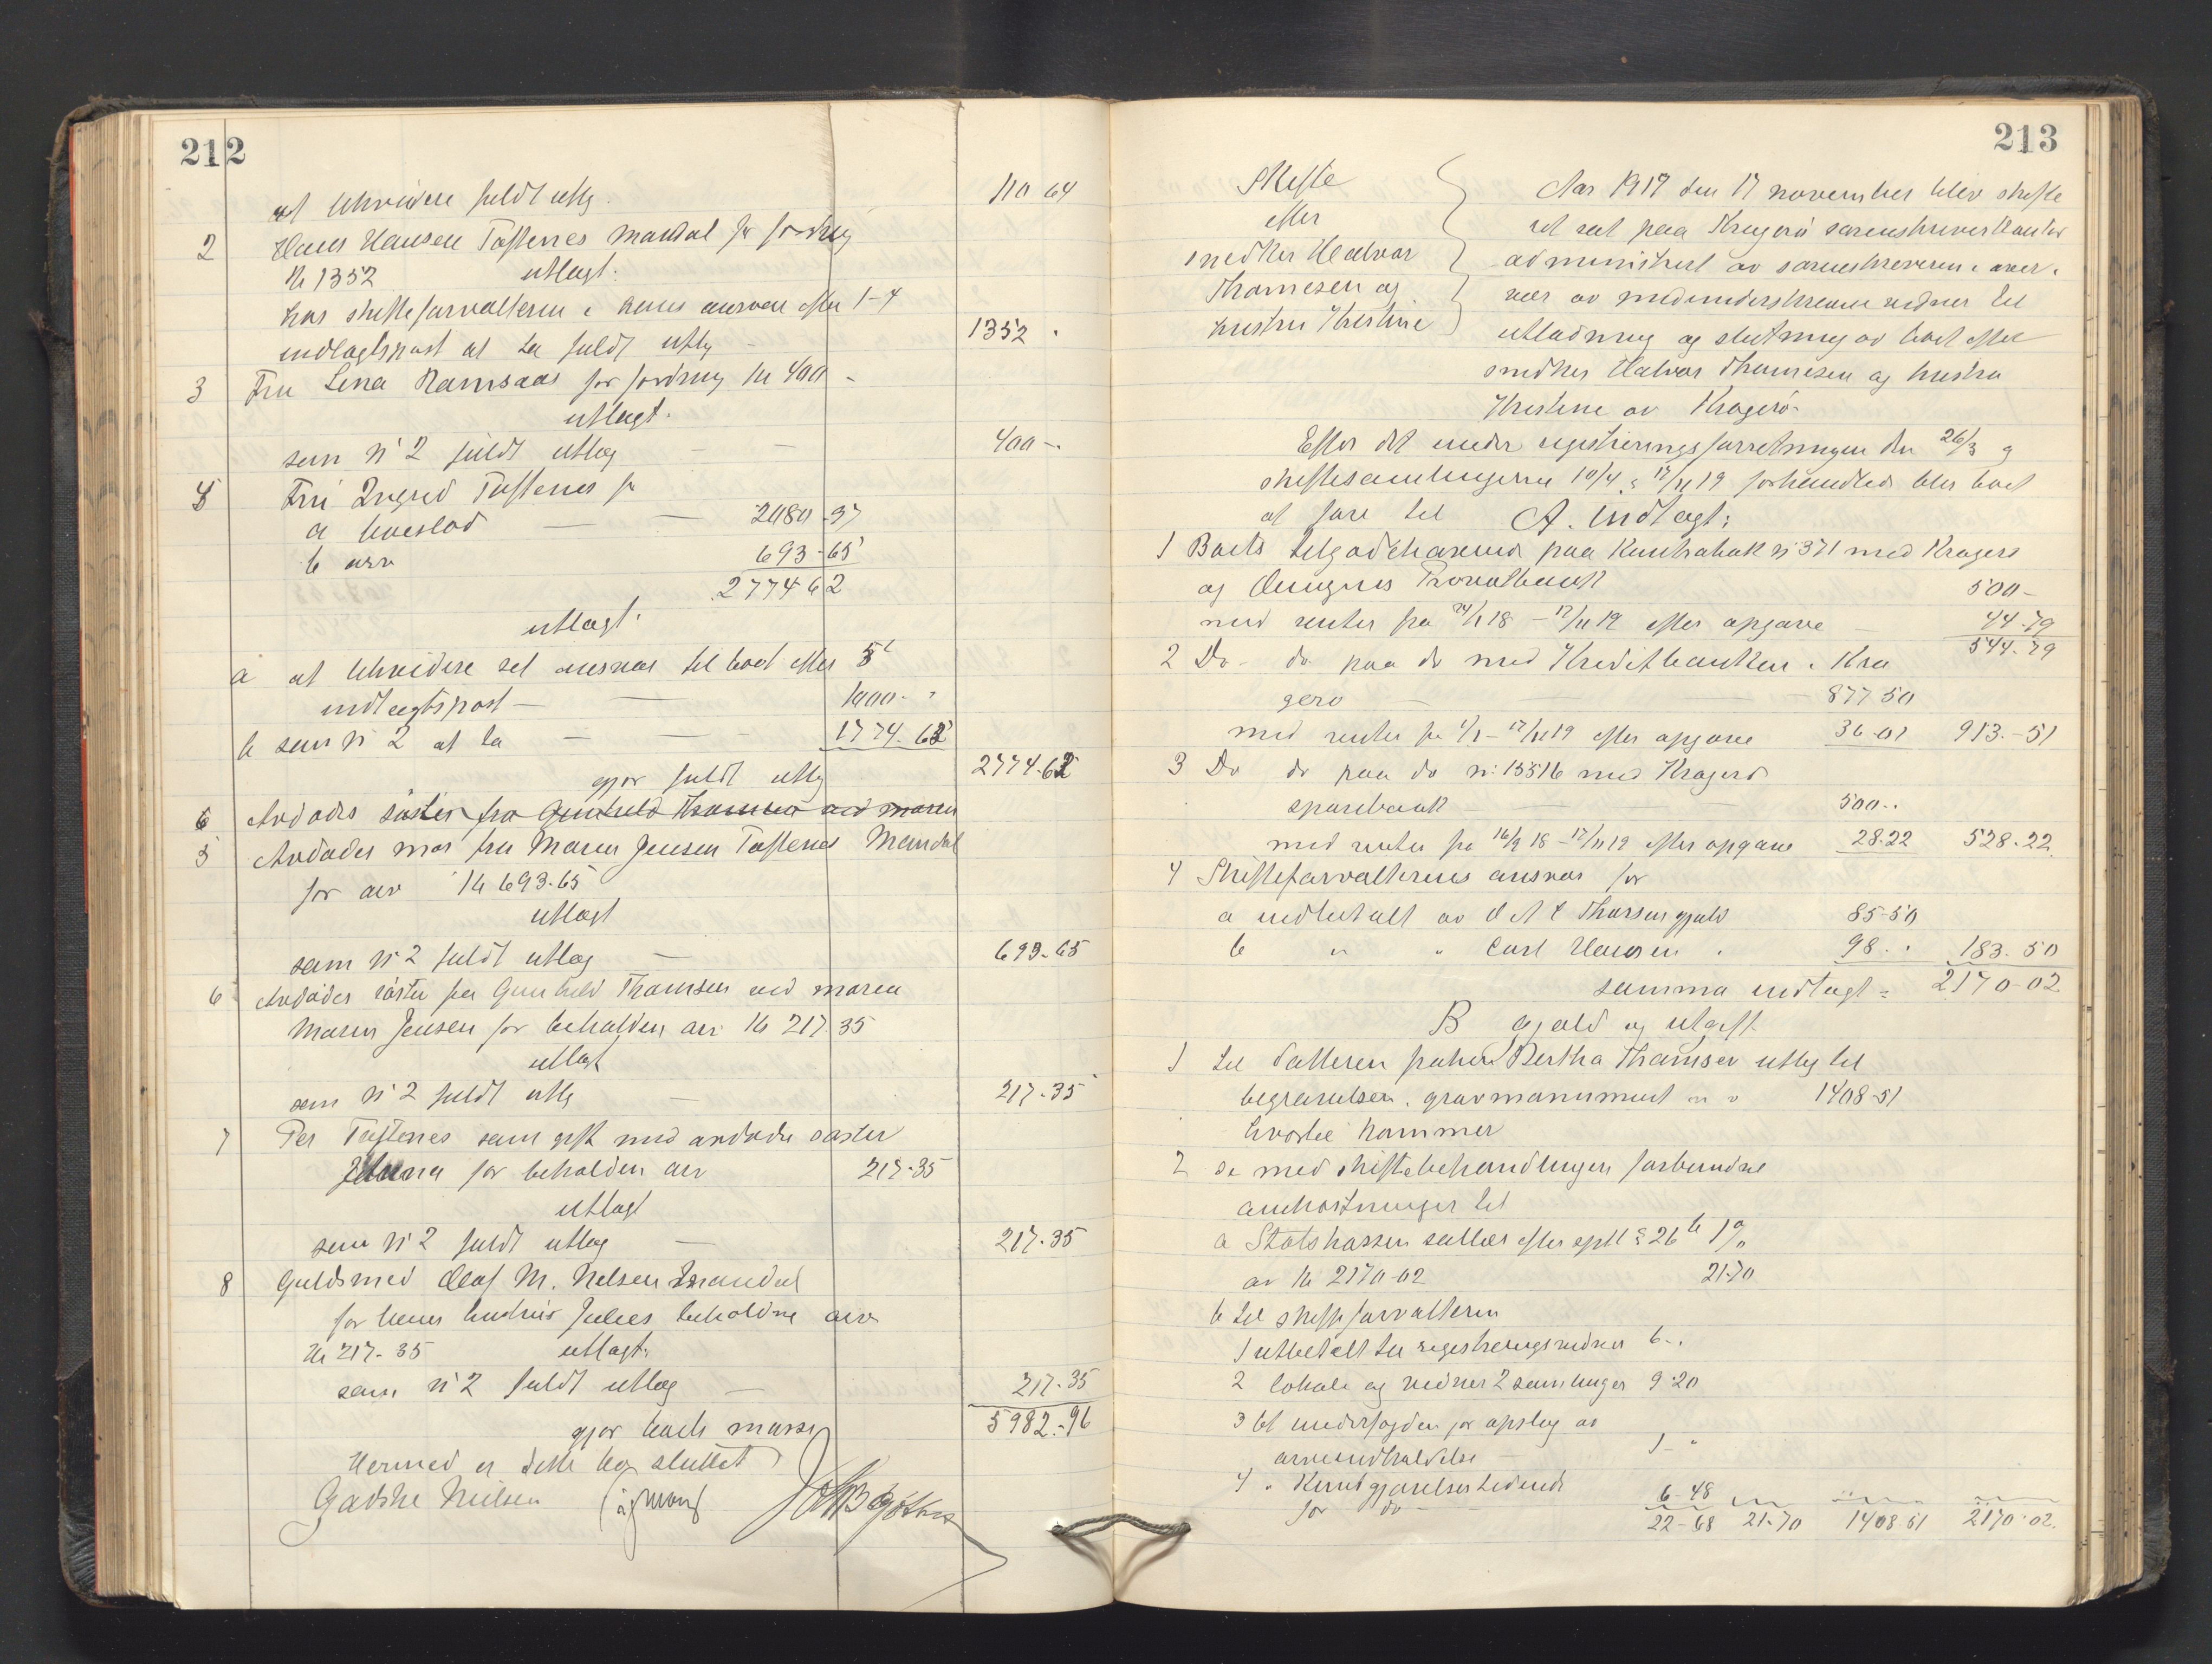 212
at likvidere fuldt utlæg. 110 64
2 Hans Hansen Toftenes Mandal for fordring
Kr 1352 utlagt:
hos skifteforvalteren i hans ansvar efter 1-4
indtægtspost at ta fuldt utlæg 1352 .
3 Fru Lena Ramsaas for fordring Kr 400 -
utlagt.
som N 2 fuldt utlæg — — 400 -.
4 Fru Ingrid Toftenes for
a boeslod — — 2080 - 97
b arv 693 - 65
2774 62
utlagt.
a at likvidere sit ansvar til boet efter 5'
indtægtspost — — 1000 - "
b som N 2 at ta — — — 1774. 62
gjør fuldt utlæg 2774-62
6 Avdødes søster fra Gunhild Thomsen ved maren
5 Avdødes mor fru Maren Jensen Toftenes Mandal
for arv Kr 693.65
utlagt
som N 2 fuldt utlæg — 693-65
6 Avdødes søster fru Gunhild Thomsen ved moren
Maren Jensen for beholden arv Kr 217.35
utlagt
som N 2 fuldt utlæg — 217-35
7 Per Toftenes som gift med avdødes søster
for beholden arv 217-35
utlagt
som N 2 fuldt utlæg — 217-35
8 Guldsmed Olaf M. Nelsen Mandal
for hans hustrus Julies beholdne arv
Kr 217-35 utlagt:
som N 2 fuldt utlæg — 217-35
gjør boets masse 5982.-96
Hermed er dette bo sluttet
Gadske Nielsen
213
Skifte
efter
snedker Halvor
Thomesen og
hustru Kirstine
Aar 1919 den 17 november blev skifte
ret sat paa Kragerø sorenskriverkontor
administrert av sorenskriveren i over-
vær av medunderskrevne vidner til
utlodning og slutning av boet efter
snedker Halvor Thomesen og hustru
Kirstine av Kragerø.
Efter det under registreringsforretningen den 26/3 og
skiftesamlingerne 10/4 & 17/11 19 forhandlede blir boet
at føre til A. Indtægt:
1 Boets tilgodehavende paa Kontrabok N 371 med Kragerø
og Omegns Privatbank 500 -
med renter fra 24/1 18 - 17/11 19 efter opgave — 44-79
544-79
2 Do - do paa do med Kreditbanken i Kra
gerø — — 877 50
med renter fra 1/1 - 17/11 19 efter opgave 36-01 913.-51
3 Do do paa do N: 15516 med Kragerø
sparebank — — 500..
med renter fra 16/9 18 - 17/11 19 efter opgave 28.22 528-22.
4 Skifteforvalterens ansvar for
a indbetalt av O A T Thorsen gjæld 85-50
b " " Carl Hansen . 98 . . 183. 50
summa indtægt = 2170-02
B gjæld og utgift
1 til datteren frøken Bertha Thomsen utlæg til
begravelsen, gravmonument m v 1408-51
Livostel kommer
2 de med skiftebehandlingen forbundne
omkostninger til
a Statskassen sallær efter sptl § 26 b 1%
av Kr 2170-02 21.70
b til skifteforvalteren
1 utbetalt til registreringsvidner 6-.
2 lokale og vidner 2 samlinger 9.20
3 til underfogden for opslag av
arveindkaldelse — 1 - "
4 " Kundgjørelsestidende
for do — 6-48
22-68 21-70 1408.51 2170.02.